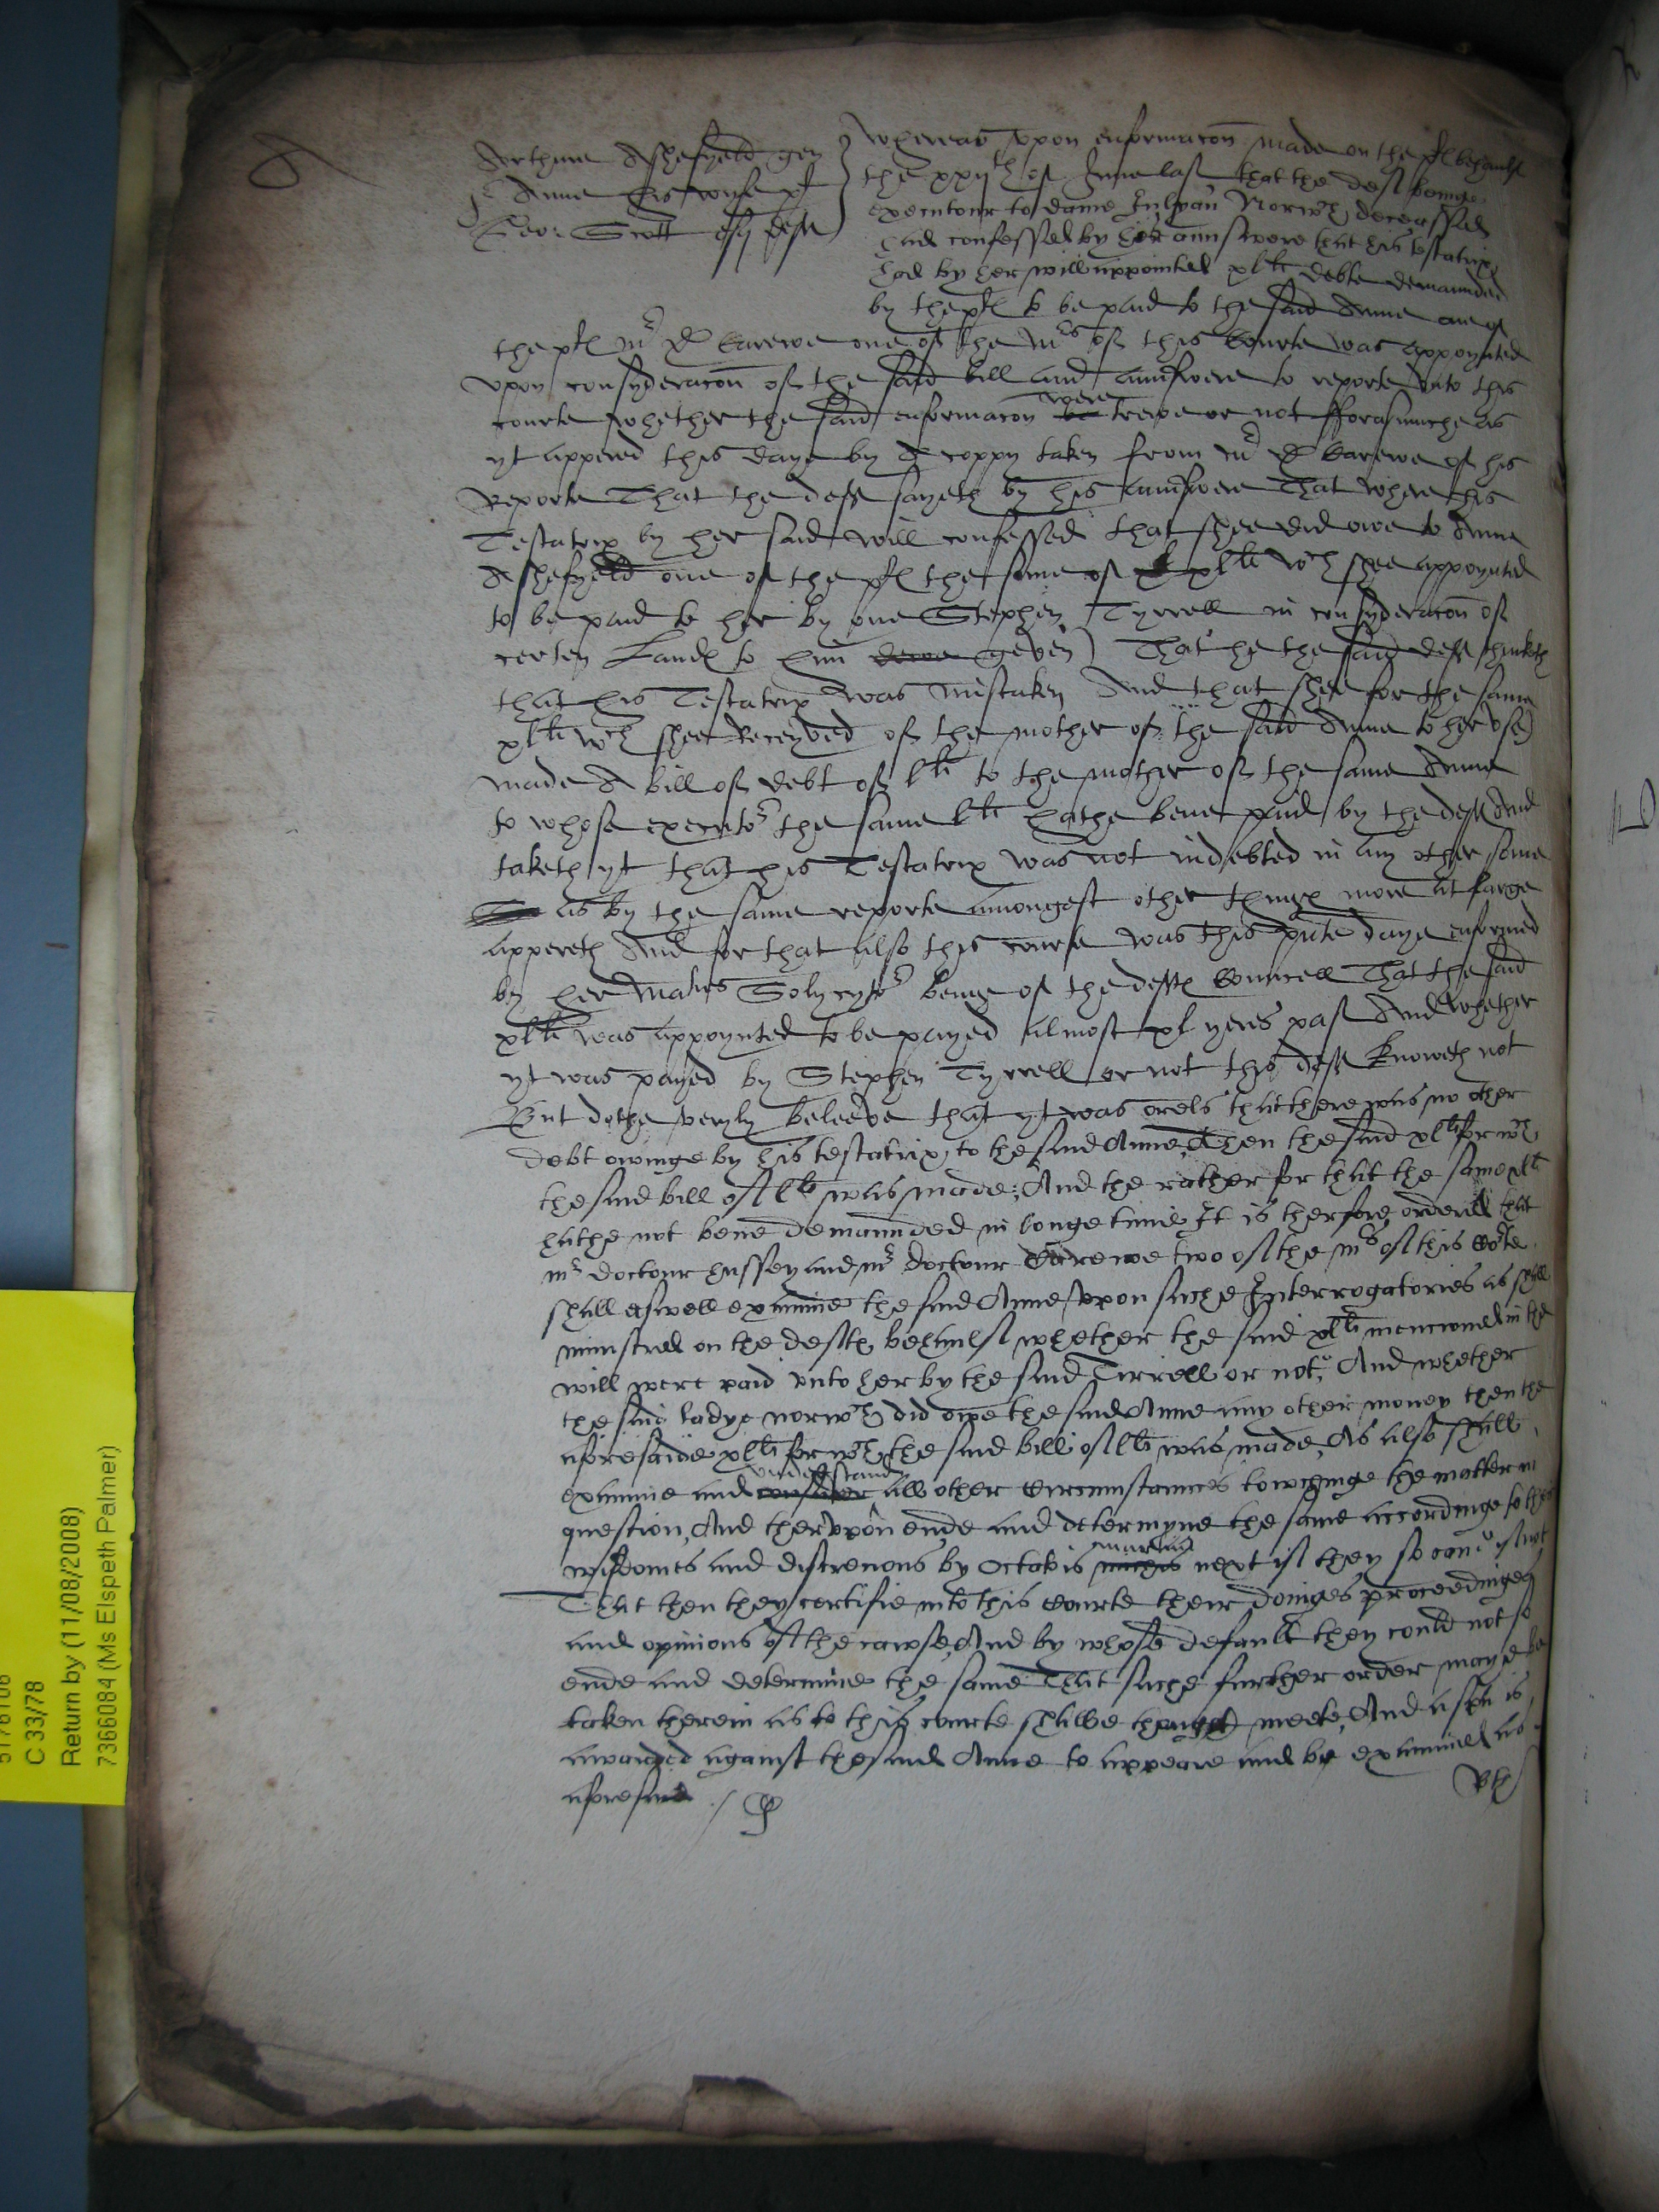 Arthure Ashefyeld gen
& Anne his wife pl
Geor Scott esq deft
Whereas vpon enformacon made on the pl behaulf
the xxijth of June last that the deft beinge
executour to dame Julyan Norwch deceassed
had confessed by his aunswere that his testatrix
had by her will appointed xlli debte demaunded
by the pl to be paid to the said Anne one of
the pl Mr D Carewe one of the Mrs of this Courte was appoynted
vpon consyderacon of the said bill and aunswere to reporte vnto this
courte whether the said enformacon were trewe or not fforasmuche as
yt appered this daye by A coppy taken from Mr D Carewe of his
Reporte That the deft sayeth by his aunswere That where his
Testatrix by her said will confessed that shee did owe to Anne
Ashefyeld one of the pl the some of xlli wch shee appoynted
to be paid to her by one Stephen Tyrrell in consyderacon of
certen Land to him geven) That he the said deft thinketh
that his Testatrix was mistaken And that shee for the same
xlli wch shee Receyved of the mother of the said Anne to her vse
made A bill of debt of lli to the mother of the same Anne
to whose executor the same lli hathe bene paid by the deft And
taketh yt that his Testatrix was not indebted in any other some
as by the same reporte amongest other things more at large
appereth And for that also this courte was this pnte daye enformed
by her Mats Solycytor being of the defts Councell That the said
xlli was appoynted to be payed almost xl yeres past And whether
yt was payed by Stephen Tyrrell or not this deft knoweth not
But dothe veryly beleeve that yt was orels that there was no other
debt owinge by his testatrix to the said Anne, then the said xlli for wch
the said bill of lli was made; And the rather for that the same xlli
hathe not bene demaunded in longe time It is therfore ordered that
mr doctour hussey and mr doctour Carewe two of the mrs of this Corte
shall aswell examine the said Anne vpon suche Interrogatories as shall
ministred on the defts behaulf whether the said xlli mencioned in the
will were paid vnto her by the said Tirrell or not, And whether
the said ladye norwch did owe the said Anne any other money then the
aforesaide xlli for wch the said bill of lli was made, As also shall
examine and vnderstand all other Circumstaunces towchinge the matter in
question, And thervpon ende and determyne the same accordinge to their
wisdomes and discrecons by Octabis martini next if they so can if not
That then they certifie into this Courte their doinges proceedinges
and opinions of the cawse, And by whose default they could not so
ende and determine the same That suche further order maye be
taken therein as to this courte shalbe thought meete, And a spa is
awarded against the said Anne to appeare and be examined as
aforesaid
C 33/78
Return by (11/08/2008)
7366084 (Ms Elspeth Palmer)